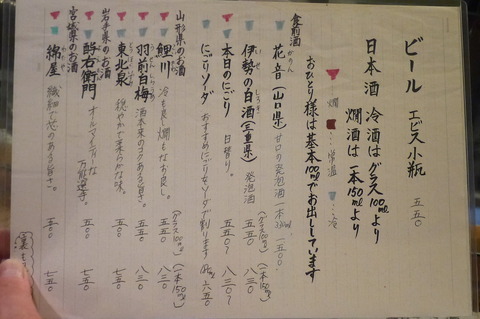 ビール ヱビス小瓶 五五〇
日本酒 冷酒はグラス100mlより
燗酒は一本150mlより
おひとり様は基本100mlでお出ししています
…燗 …常温 …冷
食前酒
花音（山口県）甘口の発泡酒 一本 一、五〇〇
伊勢の白酒（三重県）発泡酒 五五〇
本日のにごり 日替り。 五五〇〜 八三〇〜
にごりソーダ おすすめにごりをソーダで割ります 六五〇
山形県のお酒 （グラス100ml） （一本150ml）
鯉川 冷も良し燗もなお良し。 五五〇 八三〇
羽前白梅 酒本来のコクある旨さ。 五五〇 八三〇
東北泉 穏やかで柔らかな味。 五五〇 八三〇
岩手県のお酒
酉与右衛門 オルマイティーな万能選手。 五〇〇 七五〇
宮城県のお酒
綿屋 繊細で芯のある旨さ。 五〇〇 七五〇